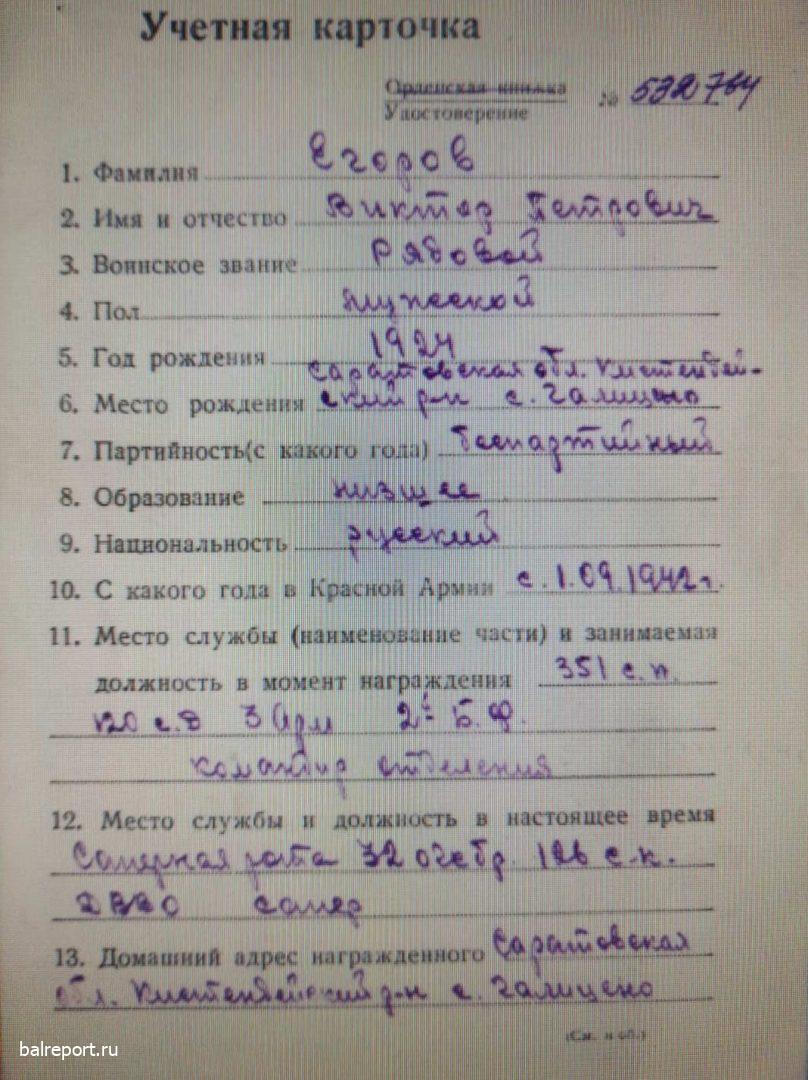 Учетная карточка
Орденская книжка № 532764
Удостоверение
1. Фамилия Егоров
2. Имя и отчество Виктор Петрович
3. Воинское звание Рядовой
4. Пол мужской
5. Год рождения 1924
Саратовская обл. Кистендей-
6. Место рождения ский р-н с. Галицено
7. Партийность(с какого года) беспартийный
8. Образование низшее
9. Национальность русский
10. С какого года в Красной Армии с 1.09.1942 г.
11. Место службы (наименование части) и занимаемая
должность в момент награждения 351 с.п.
120 с.д 3 Арм 2й Б.Ф.
командир отделения
12. Место службы и должность в настоящее время
Саперная рота 32 126 с.к.
сапер
13. Домашний адрес награжденного Саратовская
обл. Кистендейский р-н с. Галицено
(См. н об.)
balreport.ru